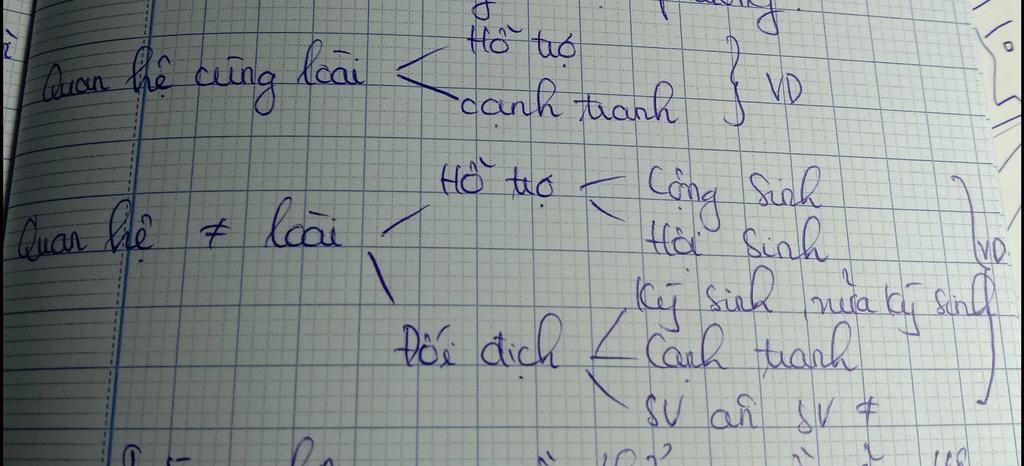 Hỗ trợ
Quan hệ cùng loài
cạnh tranh
VD
Hỗ trợ
Cộng sinh
Quan hệ ≠ loài
Hội sinh
VD
Ký sinh, nửa ký sinh
Đối địch
Cạnh tranh
SV ăn SV ≠